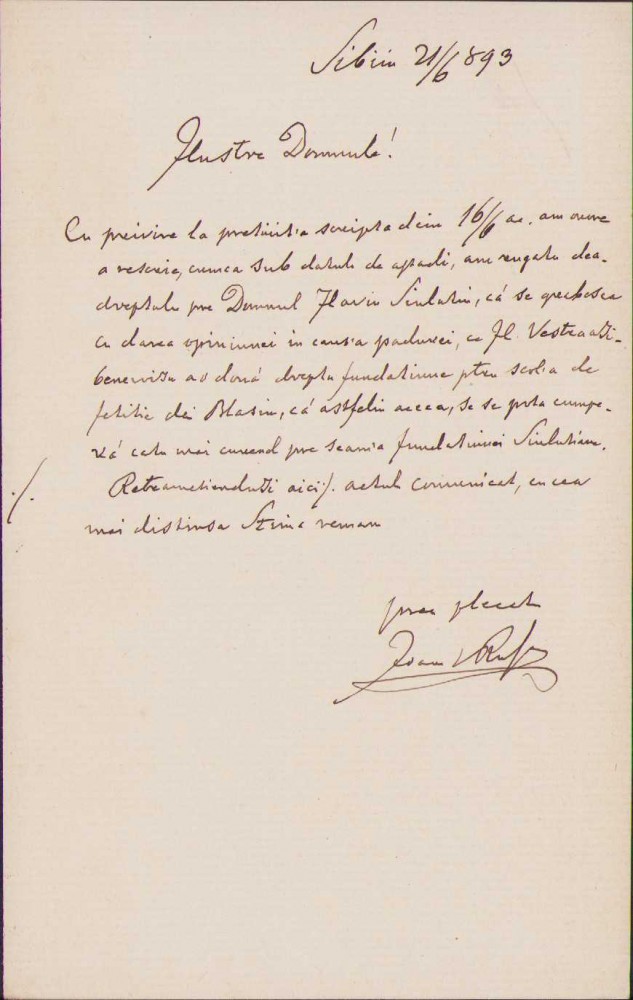 Sibiiu 21/6 893
Ilustre Domnule!
Cu preivire la pretiuit'a scripta dein 16/6 a.c. am onore
a rescrie, cumca sub datulu de astadi, am rugatu dea-
dreptulu pre Domnul Flaviu Siulutiu, cá se grabesca
cu darea opiniunei in causa padurei, ce Il. Vostra ati
benevoitu a o doná dreptu fundatiune ptru scol'a de
fetitie dein Blasiu, cá astfeliu aceea, se se pota cumpe-
rá catu mai curend pre seam'a fundatiunei Siulutiane.
./. Retramitiendu Ti aici ./. actulu comunicat, cu cea
mai distinsa Stima reman
prea plecat
Ioan V. Rusu